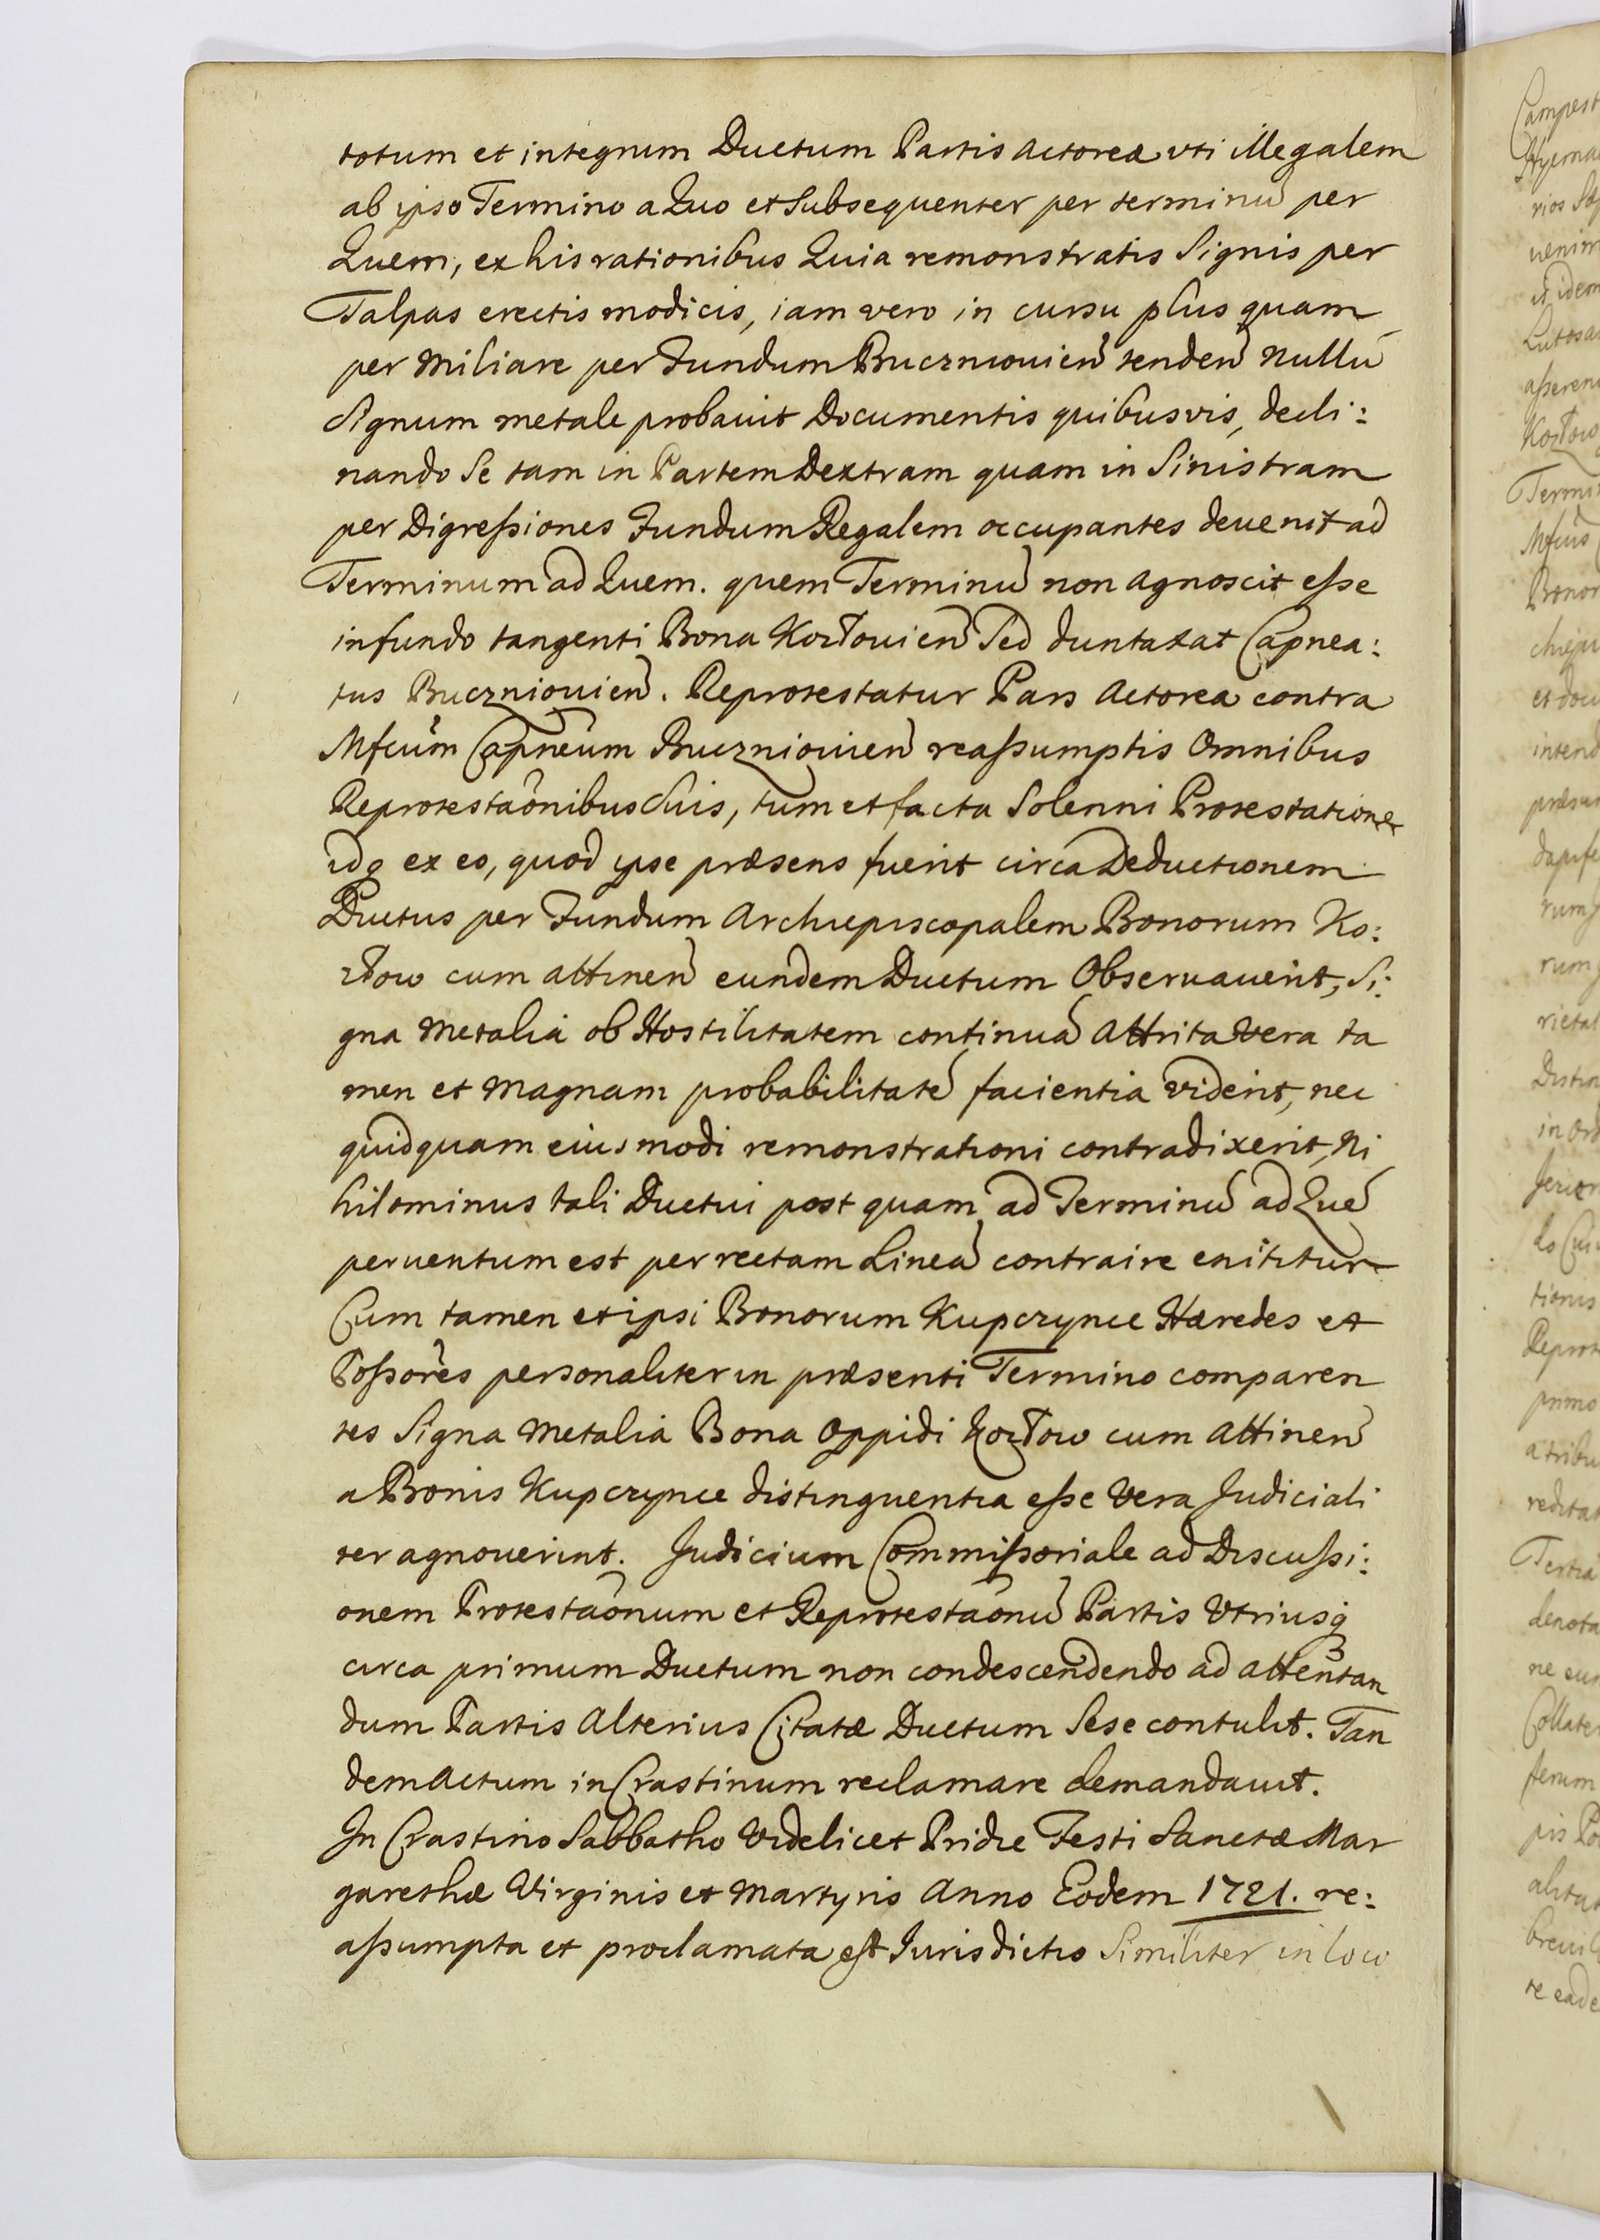 totum et integrum Ductum Partis Actoreæ vti illegalem
ab ipso Termino a Quo et Subsequenter per terminũ per
Quem, ex his rationibus Quia remonstratis Signis per
Talpas erectis modicis, iam vero in cursu plus quam
per Miliare per Fundum Buczniouien̄ tenden̄ Nullũ
Signum metale probauit Documentis quibusvis, decli:
nando Se tam in Partem Dextram quam in Sinistram
per Digreſsiones Fundum Regalem occupantes deuenit ad
Terminum ad Quem. quem Terminũ non agnoscit eſse
in fundo tangenti Bona Kozłouien̄ Sed duntaxat Capnea:
tus Buczniouien̄. Reprotestatur Pars Actorea contra
Mfcũm Capnẽum Buczniouien̄ reaſsumptis Omnibus
Reprotestaõnibus Suis, tum et facta Solenni Protestatione
idq ex eo, quod ipse præsens fuerit circa Deductionem
Ductus per Fundum Archiepiscopalem Bonorum Ko:
złow cum attinen̄ eundem Ductum Obseruauerit, Si:
gna Metalia ob Hostilitatem continuã Attrita Vera ta
men et Magnam probabilitatẽ facientia viderit, nec
quidquam eius modi remonstrationi contradixerit, Ni
hilominus tali Ductui post quam ad Terminũ ad Quẽ
peruentum est per rectam Lineã contraire enititur
Cum tamen et ipsi Bonorum Kupczynce Hæredes et
Poſsorẽs personaliter in præsenti Termino comparen
tes Signa Metalia Bona Oppidi Kozłow cum Attinen̄
a Bonis Kupczynce distinguentia eſse Vera Judiciali
ter agnouerint. Judicium Commiſsoriale ad Discuſsi:
onem Protestaõnum et Reprotestaõnũ Partis Vtriusq
circa primum Ductum non condescendendo ad attentan
dum Partis Alterius Citatæ Ductum Sese contulit. Tan
dem Actum in Crastinum reclamare demandauit.
In Crastino Sabbatho Videlicet Pridie Festi Sanctæ Mar
garethæ Virginis et Martyris Anno Eodem 1721. re:
aſsumpta et proclamata est Iurisdictio Similiter in loco